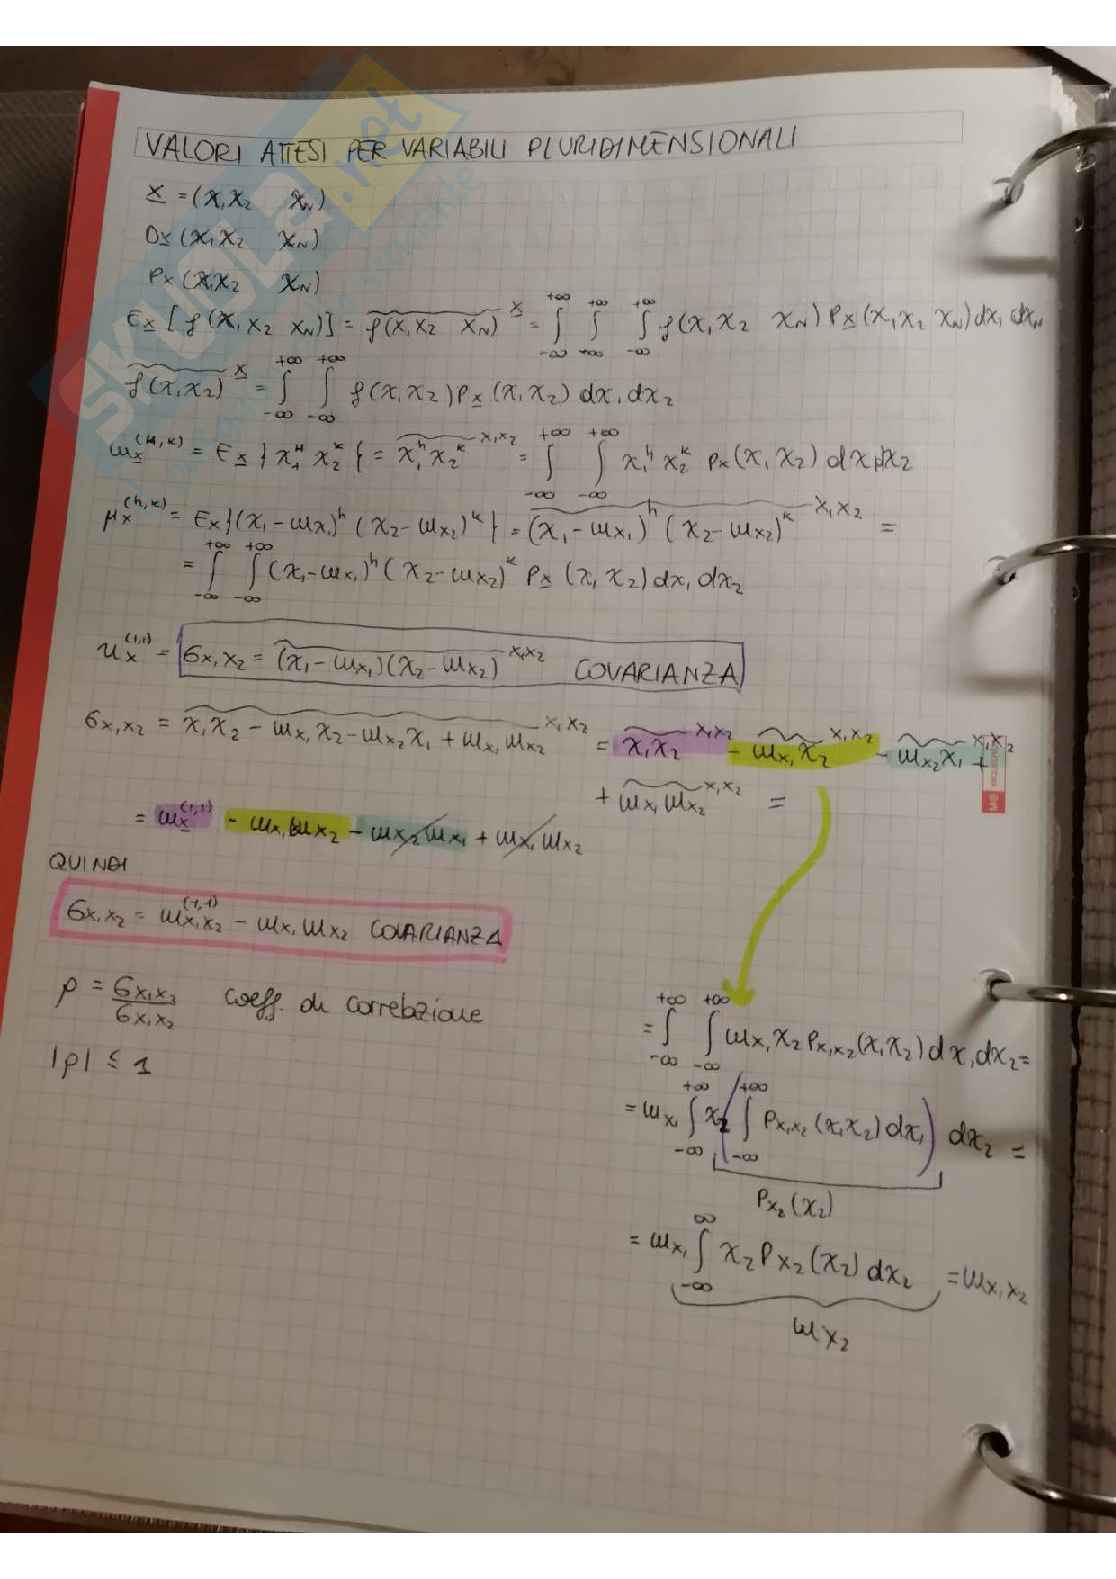 VALORI ATTESI PER VARIABILI PLURIDIMENSIONALI
x = (x₁ x₂ x_N)
D_x (x₁ x₂ x_N)
P_x (x₁ x₂ x_N)
E_x [f(x₁ x₂ x_N)] = f(x₁ x₂ x_N)^x = ∫_-∞^+∞ ∫_-∞^+∞ ∫_-∞^+∞ f(x₁ x₂ x_N) P_x (x₁ x₂ x_N) dx₁ dx_N
f(x₁ x₂)^x = ∫_-∞^+∞ ∫_-∞^+∞ f(x₁ x₂) P_x (x₁ x₂) dx₁ dx₂
m_x^(H,K) = E_x { x₁^H x₂^K } = x₁^h x₂^k ^x₁x₂ = ∫_-∞^+∞ ∫_-∞^+∞ x₁^h x₂^k P_x (x₁ x₂) dx₁ dx₂
μ_x^(h,k) = E_x {(x₁ - m_x₁)^h (x₂ - m_x₂)^k} = (x₁ - m_x₁)^h (x₂ - m_x₂)^k ^x₁x₂ =
= ∫_-∞^+∞ ∫_-∞^+∞ (x₁ - m_x₁)^h (x₂ - m_x₂)^k P_x (x₁ x₂) dx₁ dx₂
μ_x^(1,1) = σ_x₁x₂ = (x₁ - m_x₁)(x₂ - m_x₂)^x₁x₂ COVARIANZA
σ_x₁x₂ = x₁x₂ - m_x₁x₂ - m_x₂x₁ + m_x₁m_x₂ ^x₁x₂ = x₁x₂^x₁x₂ - m_x₁x₂^x₁x₂ - m_x₂x₁^x₁x₂ +
+ m_x₁m_x₂^x₁x₂ =
= m_x^(1,1) - m_x₁m_x₂ - m_x₂m_x₁ + m_x₁m_x₂
QUINDI
σ_x₁x₂ = m_x₁x₂^(1,1) - m_x₁m_x₂ COVARIANZA
ρ = σ_x₁x₂ / σ_x₁x₂ coeff. di correlazione
|ρ| ≤ 1
= ∫_-∞^+∞ ∫_-∞^+∞ m_x₁ x₂ P_x₁x₂ (x₁ x₂) dx₁ dx₂ =
= m_x₁ ∫_-∞^+∞ x₂ (∫_-∞^+∞ P_x₁x₂ (x₁ x₂) dx₁) dx₂ =
P_x₂ (x₂)
= m_x₁ ∫_-∞^∞ x₂ P_x₂ (x₂) dx₂ = m_x₁x₂
m_x₂
SKUOLA.net